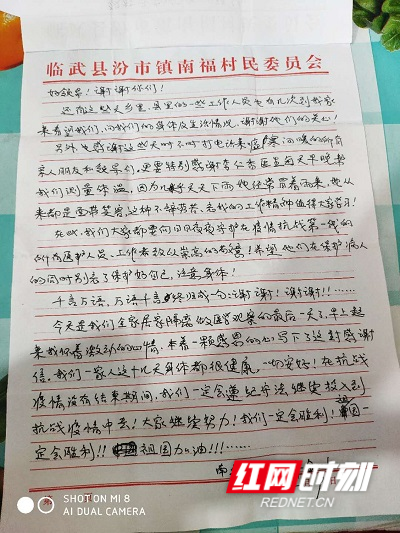 临武县汾市镇南福村民委员会
好领导！谢谢你们！
还有这些天乡里、县里的一些工作人员也有几次到我家
来看望我们，问我们的身体及生活情况，谢谢他们的关心！
另外也感谢这些天时不时打电话来嘘寒问暖的所有
亲人朋友和领导们。更要特别感谢李仁香医生每天早晚帮
我们测量体温，因为几乎天天下雨她经常冒着雨来，她从
来都是面带笑容，这种不辞劳苦、忘我的工作精神值得大家学习！
在此，我们大家都要向日日夜夜守护在疫情抗战第一线的
所有医护人员、工作者致以崇高的敬意！希望他们在保护病人
的同时别忘了保护好自己，注意身体！
千言万语，万语千言终归成一句：谢谢！谢谢！！……
今天是我们全家居家隔离做医学观察的最后一天了，早上起
来我怀着激动的心情，本着一颗感恩的心写下了这封感谢
信。我们一家人这十几天身体都很健康，一切安好！在抗战
疫情没有结束期间，我们一定会遵纪守法继续投入到
抗战疫情中去！大家继续努力！我们一定会胜利！祖国一
定会胜利！！祖国加油！！！……
南
红网时刻
REDNET.CN
SHOT ON MI 8
AI DUAL CAMERA